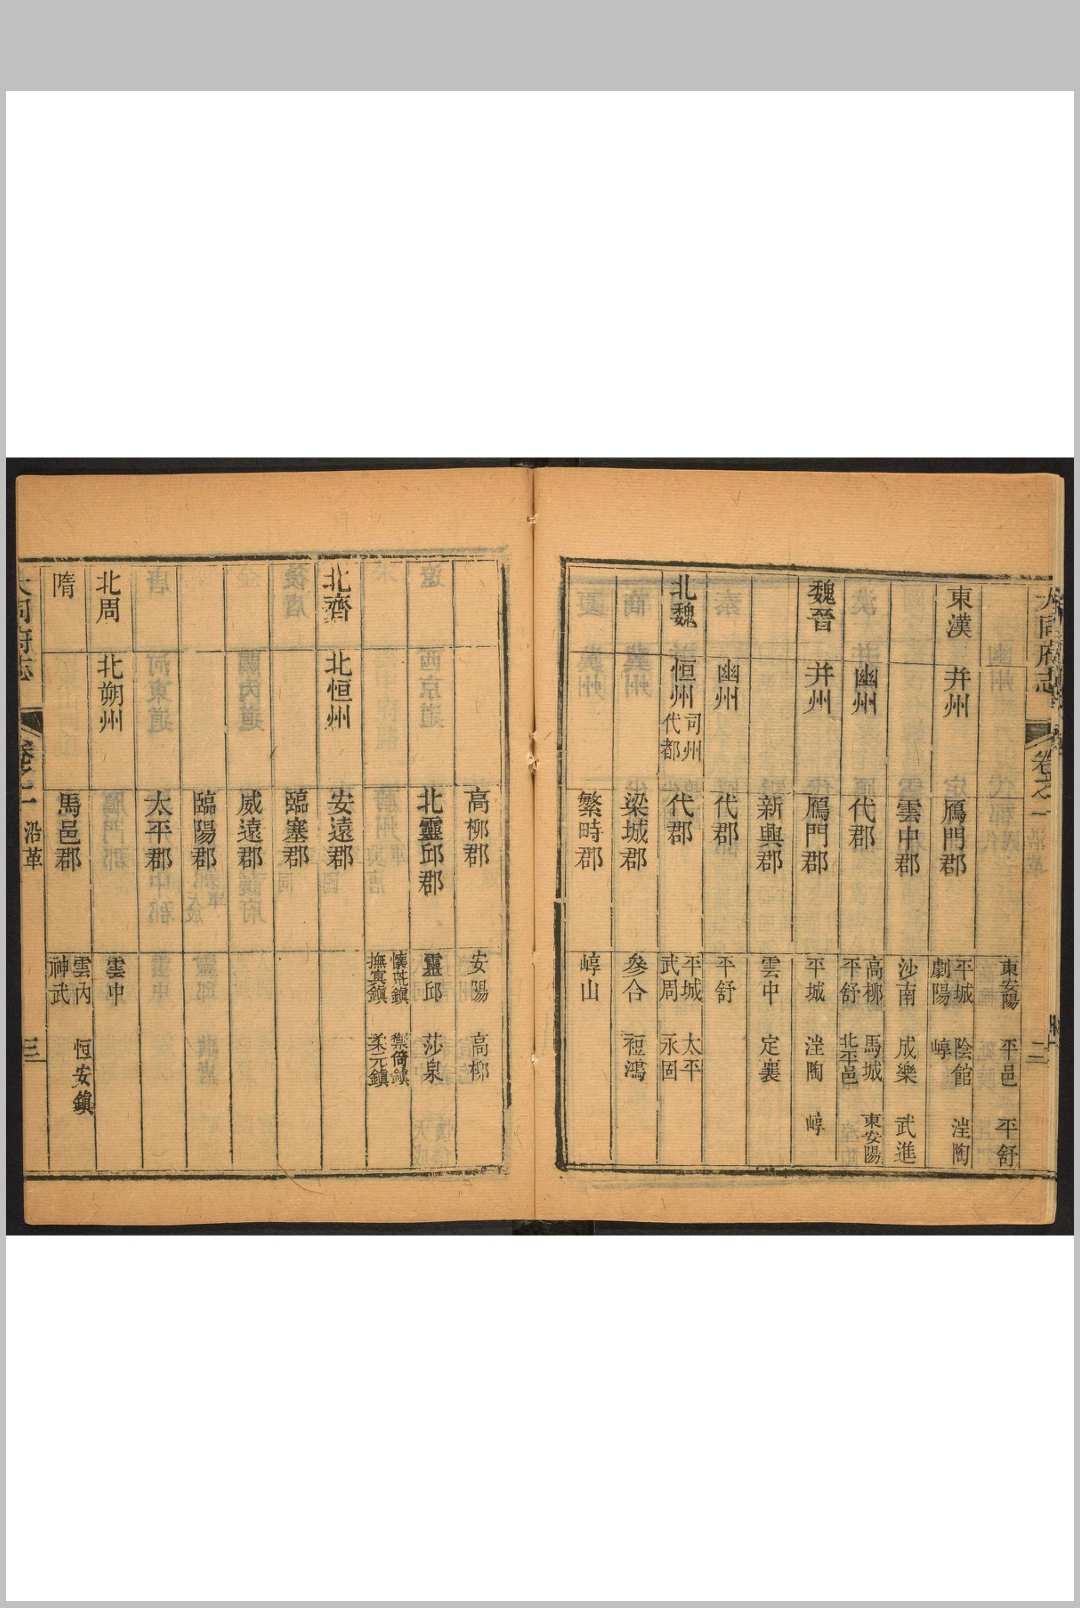 大同府志 卷之一
東安陽 平邑 平舒
東漢 并州 鴈門郡 平城 陰館 湼陶
劇陽 崞
雲中郡 沙南 成樂 武進
幽州 代郡 高柳 馬城 東安陽
平舒 北平邑
魏晉 并州 鴈門郡 平城 湼陶 崞
新興郡 雲中 定襄
幽州 代郡 平舒
北魏 恒州 司州 代都 代郡 平城 太平
武周 永固
梁城郡 參合 祖鴻
繁畤郡 崞山
高柳郡 安陽 高柳
北靈邱郡 靈邱 莎泉
懷荒鎮 禦夷鎮
撫冥鎮 柔元鎮
北齊 北恒州 安遠郡
臨塞郡
威遠郡
臨陽郡
太平郡
北周 北朔州 雲中
隋 馬邑郡 雲內 恒安鎮
神武
大同府志 卷之一 沿革 三